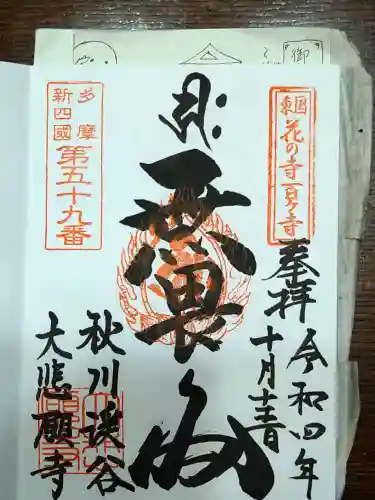 御
東国
花の寺百ヶ寺
奉拝
令和四年
十月十三日
無畏
多摩
新四國
第五十九番
秋川渓谷
大悲願寺